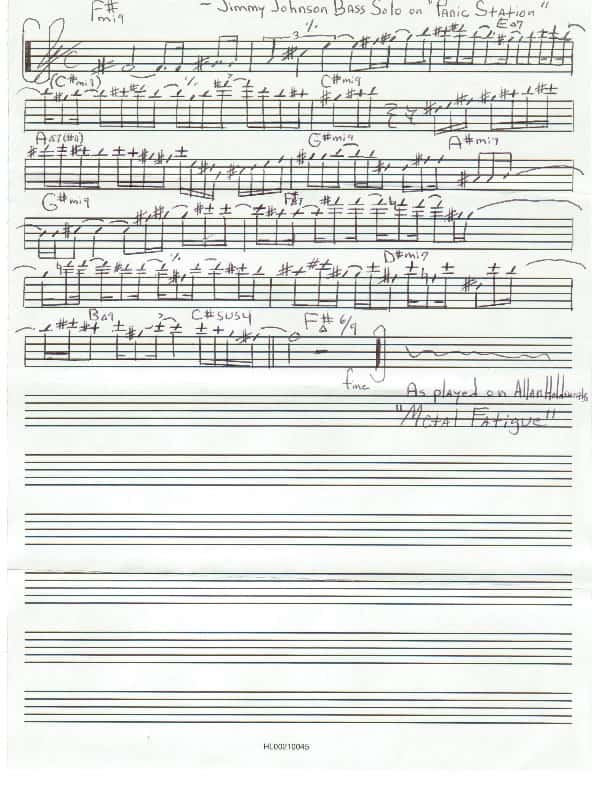 F# mi9 ~ Jimmy Johnson Bass Solo on "Panic Station"
3 ٪ E△7
(C#mi7) ٪ C#mi9
A△7(#4) G#mi9 A#mi9
G#mi9 F#7
٪ D#mi7
B△9 C#sus4 F#△ 6/9
fine
As played on Allan Holdsworth's
"Metal Fatigue"
HL00210045